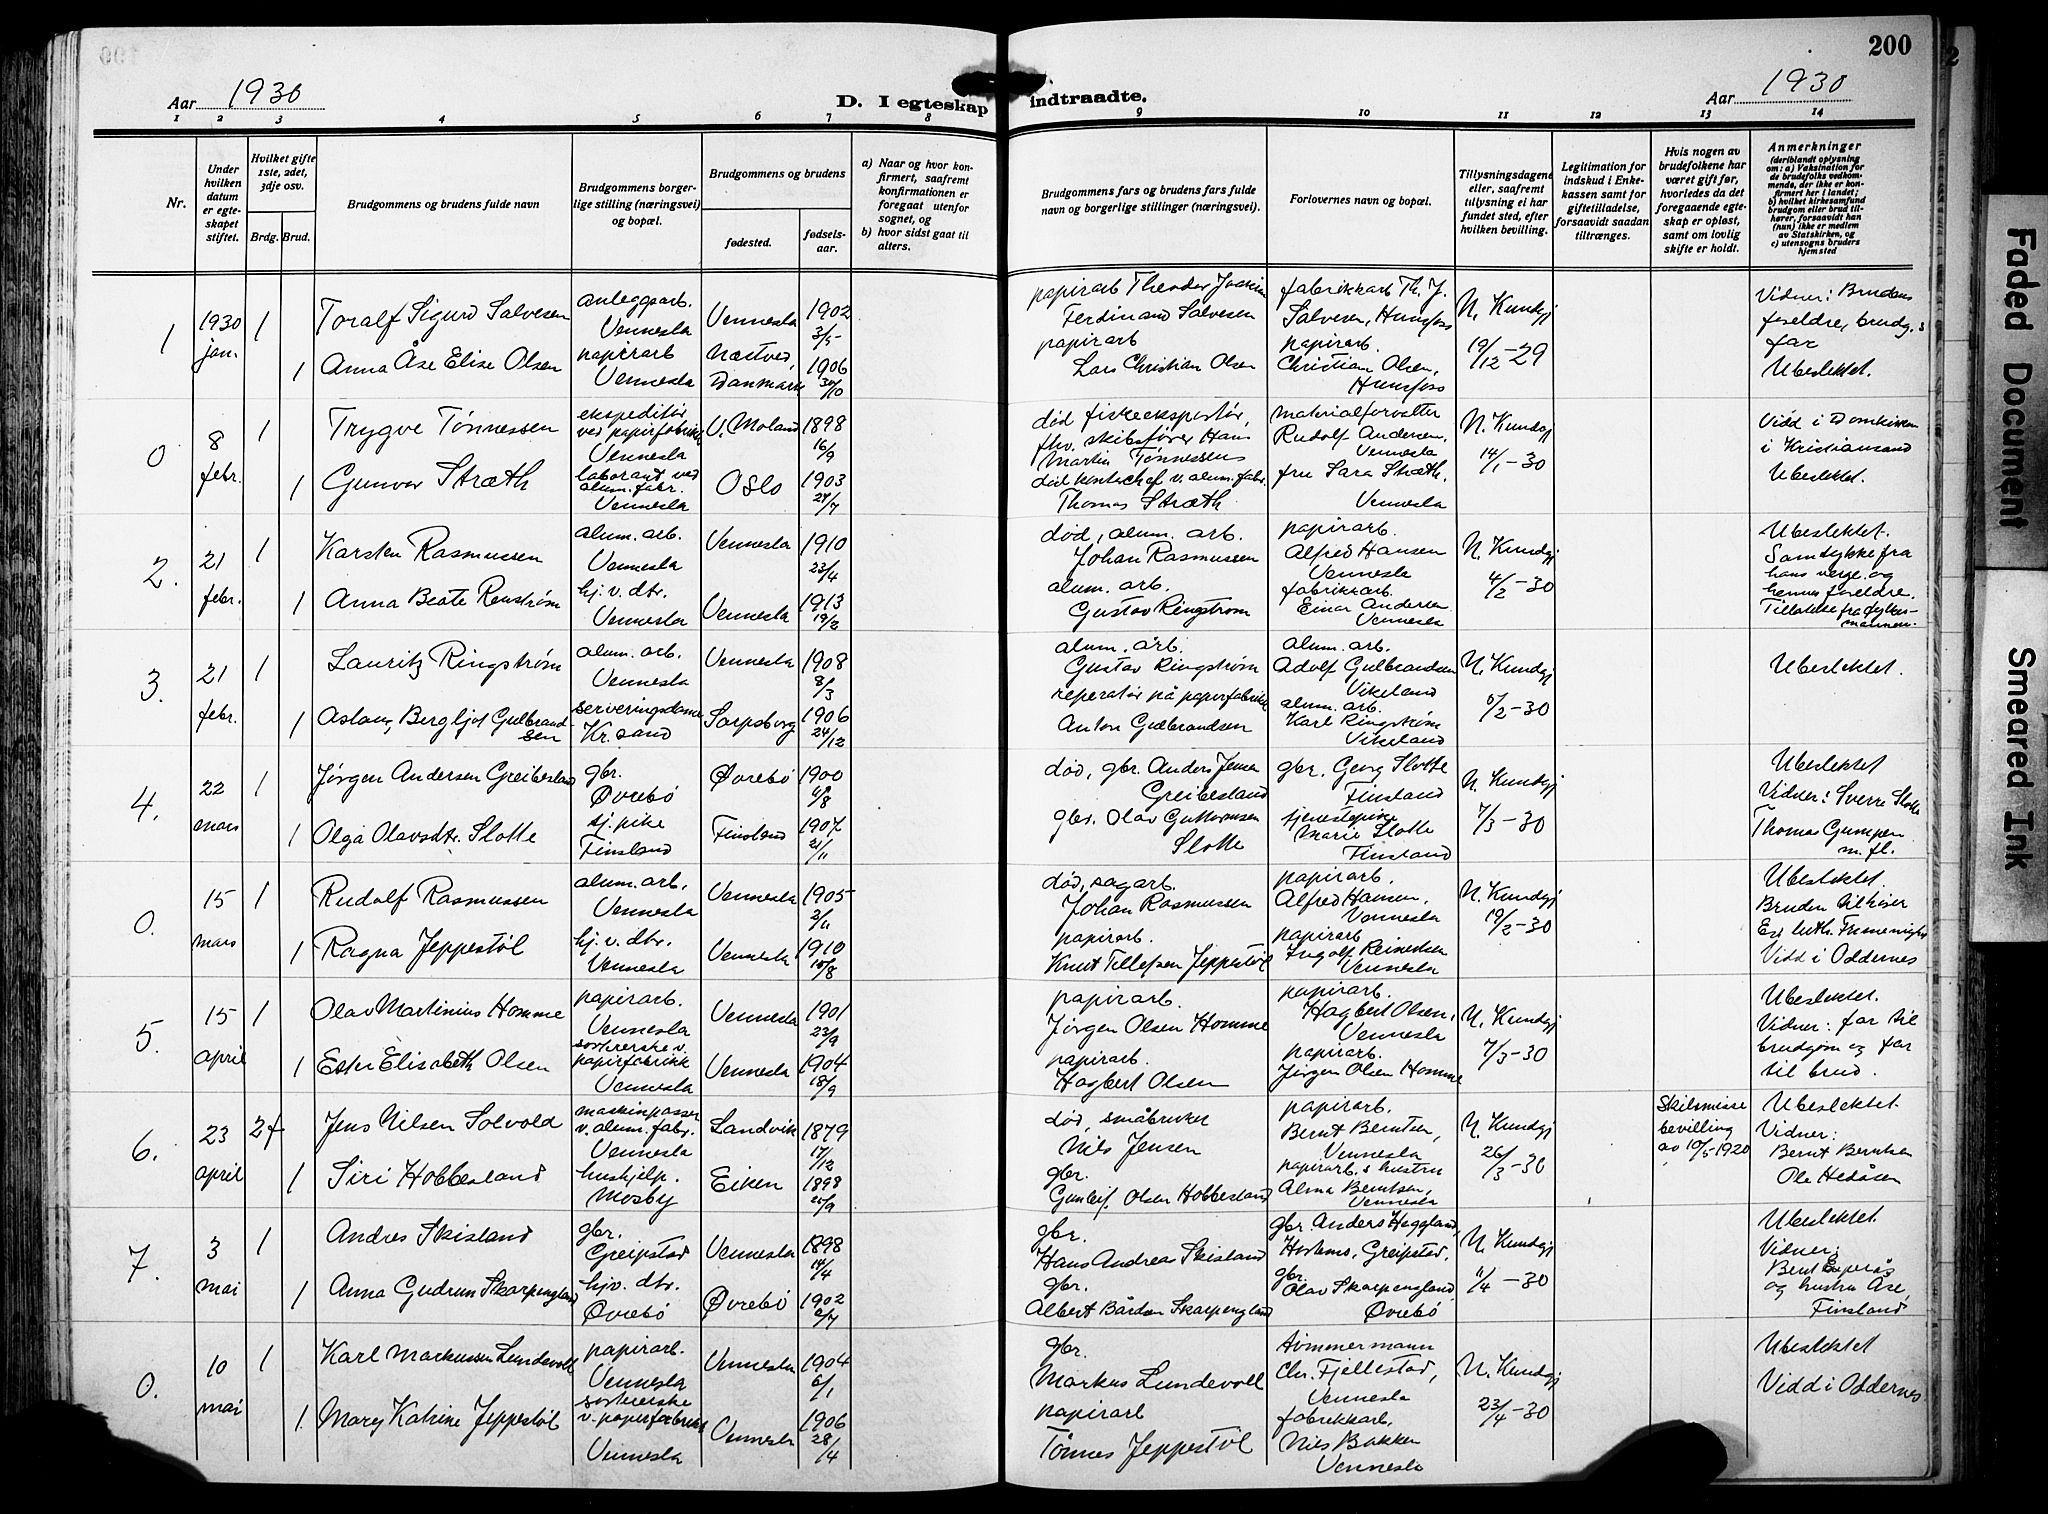 200
Aar 1930
D. I egteskap indtraadte.
Aar 1930
1 2 3 4 5 6 7 8 9 10 11 12 13 14
Nr.
Under hvilken datum er egteskapet stiftet.
Hvilket gifte 1ste, 2det, 3dje osv.
Brdg. Brud.
Brudgommens og brudens fulde navn
Brudgommens borgerlige stilling (næringsvei) og bopæl.
Brudgommens og brudens
fødested.
fødselsaar.
a) Naar og hvor konfirmert, saafremt konfirmationen er foregaat utenfor sognet, og
b) hvor sidst gaat til alters.
Brudgommens fars og brudens fars fulde navn og borgerlige stillinger (næringsvei).
Forlovernes navn og bopæl.
Tillysningsdagene eller, saafremt tillysning ei har fundet sted, efter hvilken bevilling.
Legitimation for indskud i Enkekassen samt for giftetilladelse, forsaavidt saadan tiltrænges.
Hvis nogen av brudefolkene har været gift før, hvorledes da det foregaaende egteskap er opløst, samt om lovlig skifte er holdt.
Anmerkninger
(deriblandt oplysning om: a) Vaksination for de brudefolks vedkommende, der ikke er konfirmert her i landet; b) hvilket kirkesamfund brudgom eller brud tilhører, forsaavidt han (hun) ikke er medlem av Statskirken, og c) utensogns bruders hjemsted
1
1930 jan.
1
Toralf Sigurd Salvesen
anleggsarb. Vennesla
Vennesla
1902 3/5
papirarb Theodor Joakim Ferdinand Salvesen
fabrikkarb Th. J. Salvesen, Hunsfoss
N. Kundgj 19/12-29
Vidner: Brudens foreldre, brudg.s far
Ubeslektet.
1
Anna Åse Elise Olsen
papirarb Vennesla
Næstved Danmark
1906 30/10
papirarb Lars Christian Olsen
papirarb. Christian Olsen, Hunsfoss
0
8 febr.
1
Trygve Tønnessen
ekspeditør ved papirfabrikk Vennesla
V. Moland
1898 16/9
død fiskeeksportør, fhv. skibsfører Hans Martin Tønnessen
materialforvalter Rudolf Andersen, Vennesla
N. Kundgj 14/1-30
Vidd i Domkirken i Kristiansand
Ubeslektet.
1
Gunvor Stræth
laborant ved alum. fabr. Vennesla
Oslo
1903 24/7
død kontorchef v. alum. fabr. Thomas Stræth
fru Sara Stræth, Vennesla
2.
21 febr.
1
Karsten Rasmussen
alum. arb. Vennesla
Vennesla
1910 23/4
død, alum. arb. Johan Rasmussen
papirarb. Alfred Hansen Vennesla
N. Kundgj 4/2-30
Ubeslektet.
Samtykke fra hans verge og hennes foreldre.
Tillatelse fra fylkesmannen.
1
Anna Beate Renstrøm
hj. v. dtr. Vennesla
Vennesla
1913 19/2
alum. arb. Gustav Ringstrøm
fabrikkarb. Einar Andersen Vennesla
3.
21 febr.
1
Lauritz Ringstrøm
alum. arb. Vennesla
Vennesla
1908 8/3
alum. arb. Gustav Ringstrøm
alum. arb. Adolf Gulbrandsen Vikeland
N. Kundgj /2-30
Ubeslektet.
1
Aslaug Bergljot Gulbrandsen
serveringsdame Kr.sand
Sarpsborg
1906 24/12
reperatør på papirfabrikk Anton Gulbrandsen
alum. arb. Karl Ringstrøm Vikeland
4.
22 mars
1
Jørgen Andersen Greibesland
gbr. Øvrebø
Øvrebø
1900 /8
død, gbr. Anders Jensen Greibesland
gbr. Georg Slotte Finsland
N. Kundgj 7/3-30
Ubeslektet
Vidner: Sverre Slotte Thomas Gumpen m. fl.
1
Olga Olavsdtr. Slotte
tj. pike Finsland
Finsland
1907 21/11
gbr. Olav Guttormsen Slotte
tjenestepike Marie Slotte Finsland
0.
15 mars
1
Rudolf Rasmussen
alum. arb. Vennesla
Vennesla
1905 2/11
død, sagarb. Johan Rasmussen
papirarb. Alfred Hansen, Vennesla
N. Kundgj 19/2-30
Ubeslektet.
Bruden tilhører Ev. luth. Frimenighet
Vidd i Oddernes
1
Ragna Jeppestøl
hj. v. dtr. Vennesla
Vennesla
1910 15/8
papirarb. Knut Tellefsen Jeppestøl
papirarb Ingolf Reinertsen Vennesla
5.
15 april
1
Olav Martinius Homme
papirarb. Vennesla
Vennesla
1901 23/9
papirarb. Jørgen Olsen Homme
papirarb. Hagbert Olsen, Vennesla
N. Kundgj 7/3-30
Ubeslektet.
Vidner: far til brudgom og far til brud.
1
Ester Elisabeth Olsen
sorterske v. papirfabrikk Vennesla
Vennesla
1904 18/9
papirarb. Hagbert Olsen
papirarb. Jørgen Olsen Homme
6.
23 april
2f
Jens Nilsen Solvold
maskinpasser v. alum. fabr. Vennesla
Landvik
1879 17/12
død, småbruker Nils Jensen
papirarb. Bernt Berntsen, Vennesla
N. Kundgj 26/3-30
Skilsmisse bevilling av 19/5-1920
Ubeslektet.
Vidner: Bernt Berntsen Ole Hedåsen
1
Siri Hobbesland
hushjelp. Mosby
Eiken
1898 25/9
gbr. Gunleif Olsen Hobbesland
papirarb.s hustru Alma Berntsen, Vennesla
7.
3 mai
1
Andres Skisland
gbr. Greipstad
Vennesla
1898 14/4
gbr. Hans Andreas Skisland
gbr. Anders Heggland, Greipstad,
N. Kundgj 11/4-30
Ubeslektet.
Vidner: Bent og hustru Åse, Finsland
1
Anna Gudrun Skarpengland
hjv. dtr. Øvrebø
Øvrebø
1902 2/7
gbr. Albert Bårdsen Skarpengland
gbr. Olav Skarpengland, Øvrebø
0.
10 mai
1
Karl Markussen Lundevoll
papirarb. Vennesla
Vennesla
1904 6/1
gbr. Markus Lundevoll
tømmermann Chr. Fjellestad, Vennesla
N. Kundgj 23/4-30
Ubeslektet
Vidd i Oddernes
1.
Mary Katrine Jeppestøl
sorterske v. papirfabrikk Vennesla
Vennesla
1906 28/4
papirarb Tønnes Jeppestøl
fabrikkarb. Nils Bakken Vennesla
Faded Document
Smeared Ink